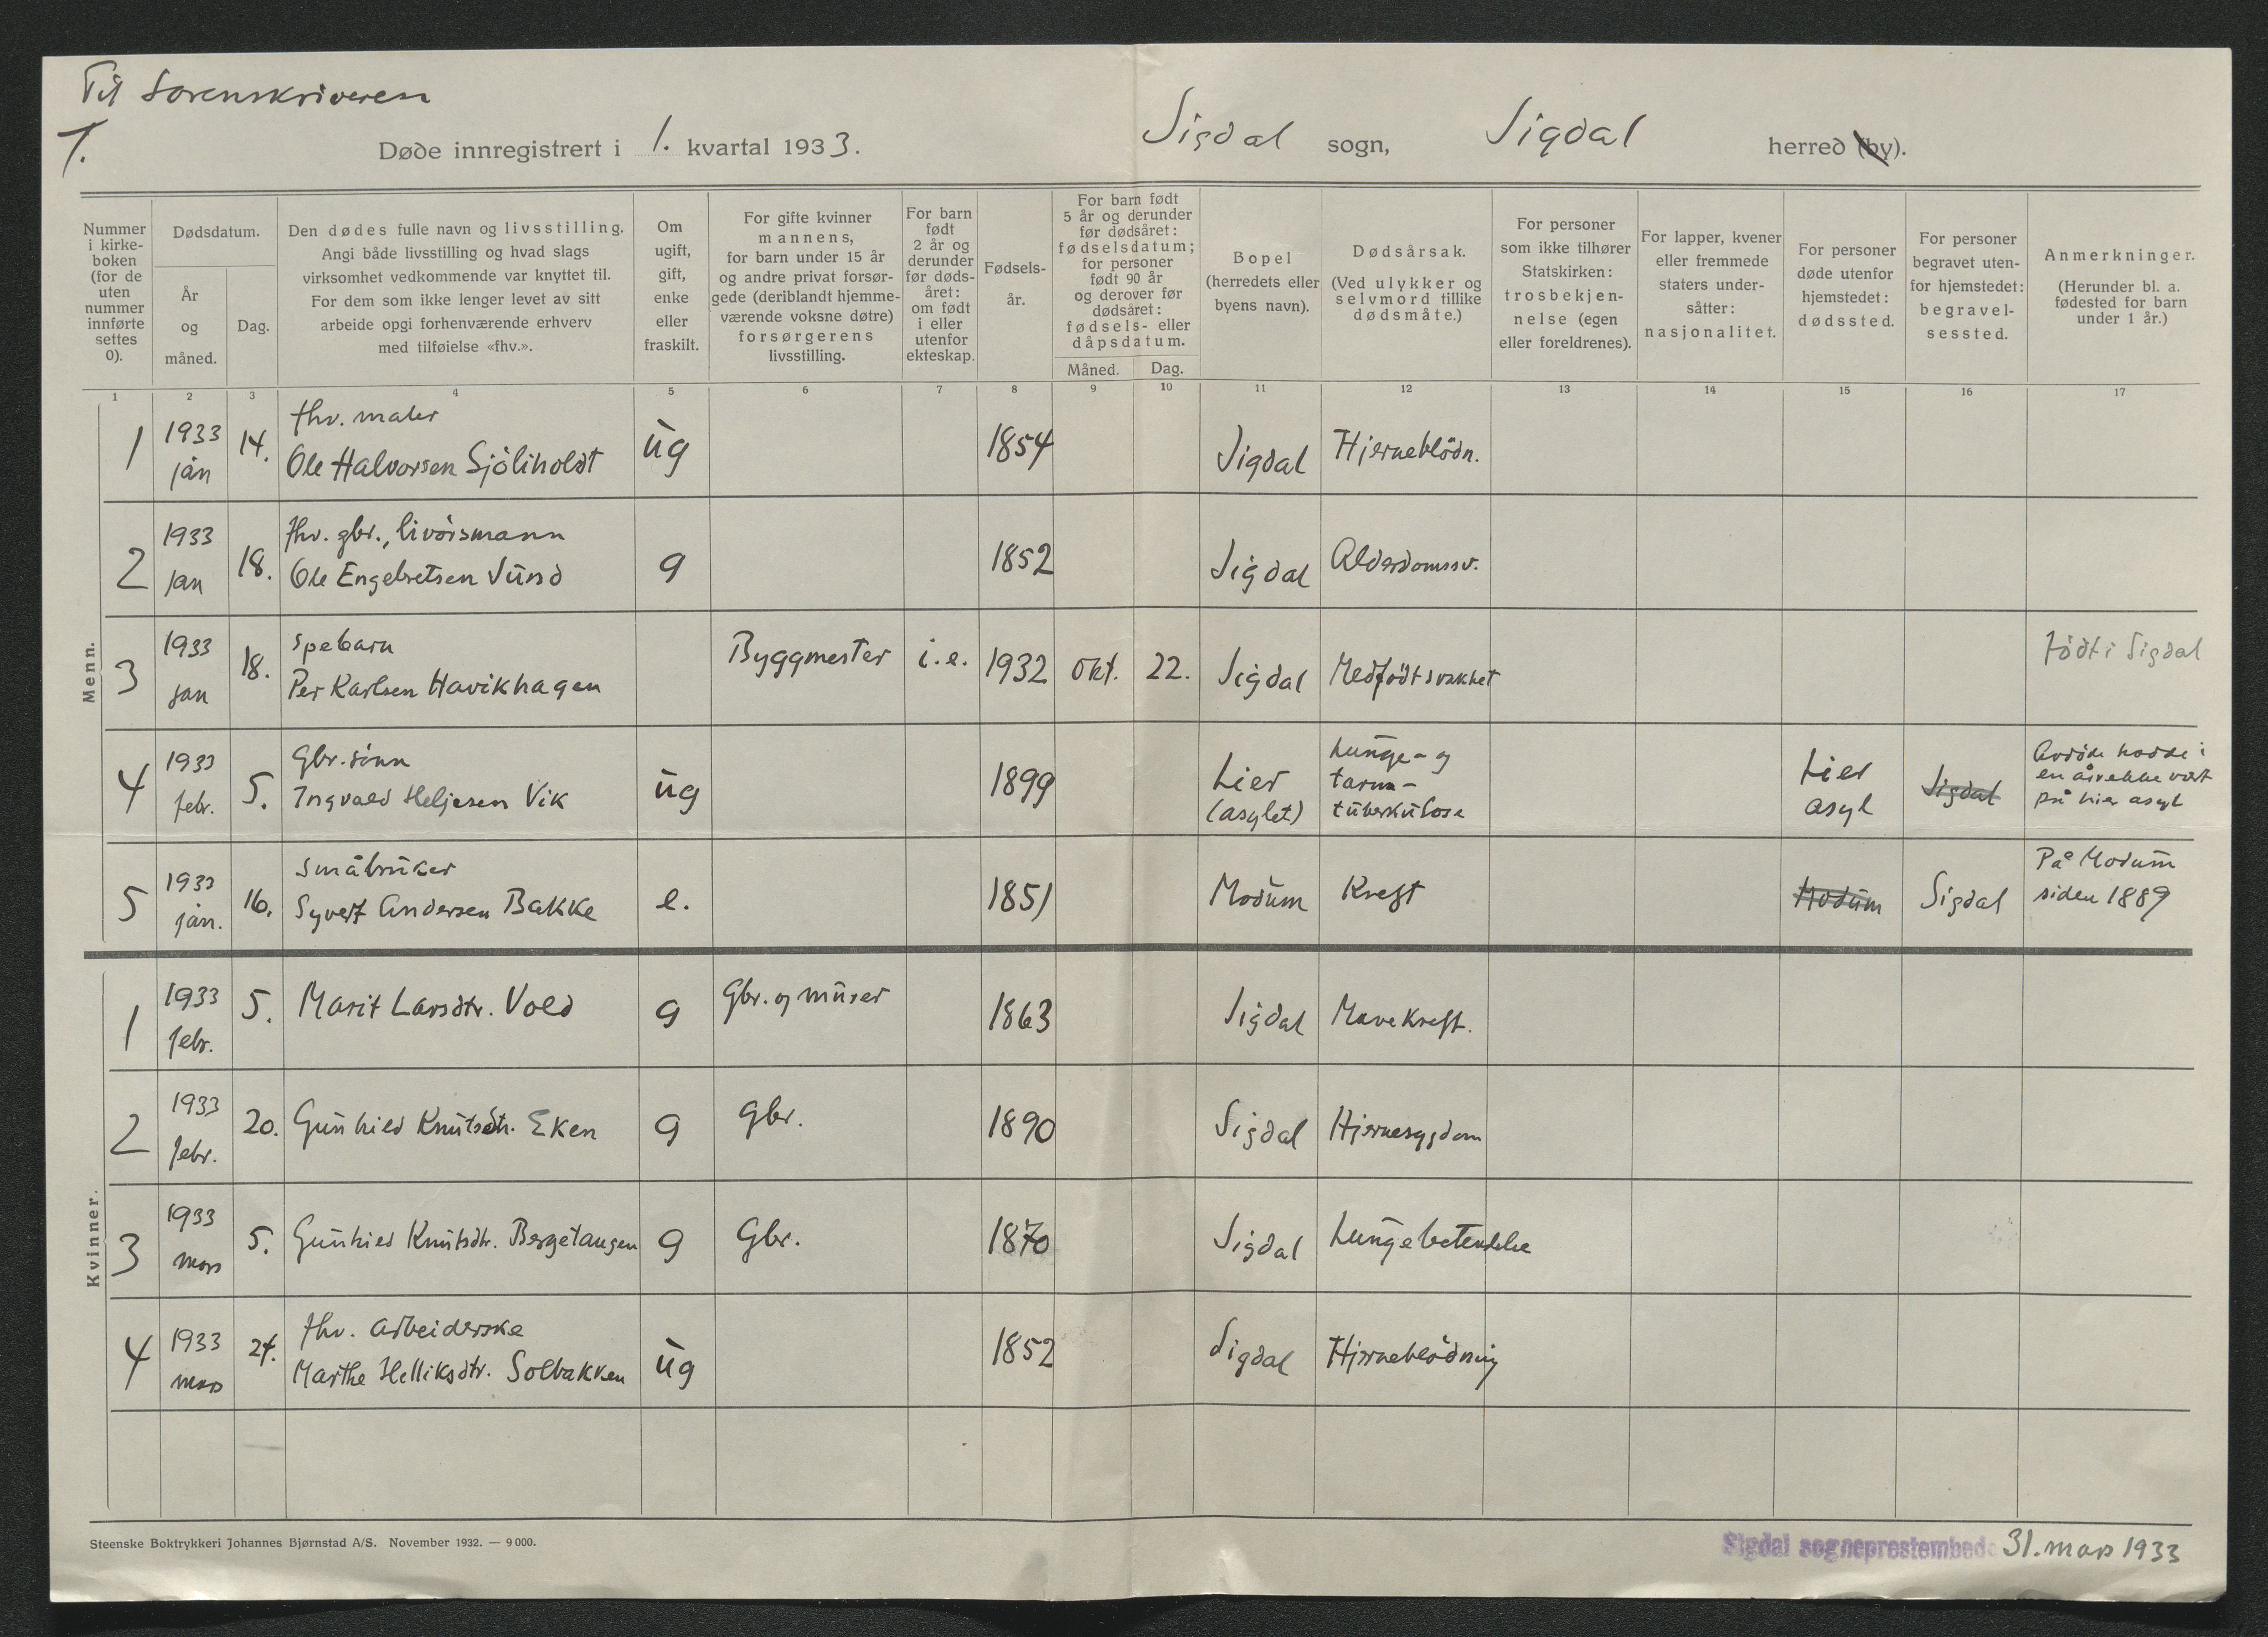 Til Sorenskriveren
1.
Døde innregistrert i 1. kvartal 1933. Sigdal sogn, Sigdal herred (by).
Nummer i kirke-boken (for de uten nummer innførte settes 0).
Dødsdatum.
År og måned.
Dag.
Den dødes fulle navn og livsstilling.
Angi både livsstilling og hvad slags
virksomhet vedkommende var knyttet til.
For dem som ikke lenger levet av sitt
arbeide opgi forhenværende erhverv
med tilføielse «fhv.».
Om
ugift,
gift,
enke
eller
fraskilt.
For gifte kvinner
mannens,
for barn under 15 år
og andre privat forsør-
gede (deriblandt hjemme-
værende voksne døtre)
forsørgerens
livsstilling.
For barn
født
2 år og
derunder
før døds-
året:
om født
i eller
utenfor
ekteskap.
Fødsels-
år.
For barn født
5 år og derunder
før dødsåret:
fødselsdatum;
for personer
født 90 år
og derover før
dødsåret:
fødsels- eller
dåpsdatum.
Måned. Dag.
Bopel
(herredets eller
byens navn).
Dødsårsak.
(Ved ulykker og
selvmord tillike
dødsmåte.)
For personer
som ikke tilhører
Statskirken:
trosbekjen-
nelse (egen
eller foreldrenes).
For lapper, kvener
eller fremmede
staters under-
såtter:
nasjonalitet.
For personer
døde utenfor
hjemstedet:
dødssted.
For personer
begravet uten-
for hjemstedet:
begravel-
sessted.
Anmerkninger.
(Herunder bl. a.
fødested for barn
under 1 år.)
1 2 3 4 5 6 7 8 9 10 11 12 13 14 15 16 17
Menn.
1 1933 jan 14. fhv. maler
Ole Halvorsen Sjöliholdt ug 1854 Sigdal Hjerneblödn.
2 1933 jan 18. fhv. gbr., livörsmann
Ole Engebretsen Lund g 1852 Sigdal Alderdomssv.
3 1933 jan 18. Spebarn
Per Karlsen Havikhagen Byggmester i.e. 1932 okt. 22. Sigdal Medfödt svakhet Födt i Sigdal
4 1933 febr. 5. Gbr. sönn
Ingvald Heljesen Vik ug 1899 Lier
(asylet) Lunge- og
tarm-
tuberkulose Lier
asyl Sigdal Avdöde hadde i
en årrekke vært
på Lier asyl
5 1933 jan. 16. Småbruker
Syvert Andersen Bakke e. 1851 Modum Kreft Modum Sigdal På Modum
siden 1889
Kvinner.
1 1933 febr. 5. Marit Larsdtr. Vold g Gbr. og murer 1863 Sigdal Mavekreft.
2 1933 febr. 20. Gunhild Knutsdtr. Eken g Gbr. 1890 Sigdal Hjernesygdom
3 1933 mars 5. Gunhild Knutsdtr. Bergetangen g Gbr. 1870 Sigdal Lungebetendelse
4 1933 mars 24. fhv. arbeiderske
Marthe Helliksdtr. Solbakken ug 1852 Sigdal Hjerneblödning
Steenske Boktrykkeri Johannes Bjørnstad A/S. November 1932. — 9 000.
Sigdal sogneprestembede 31. mars 1933